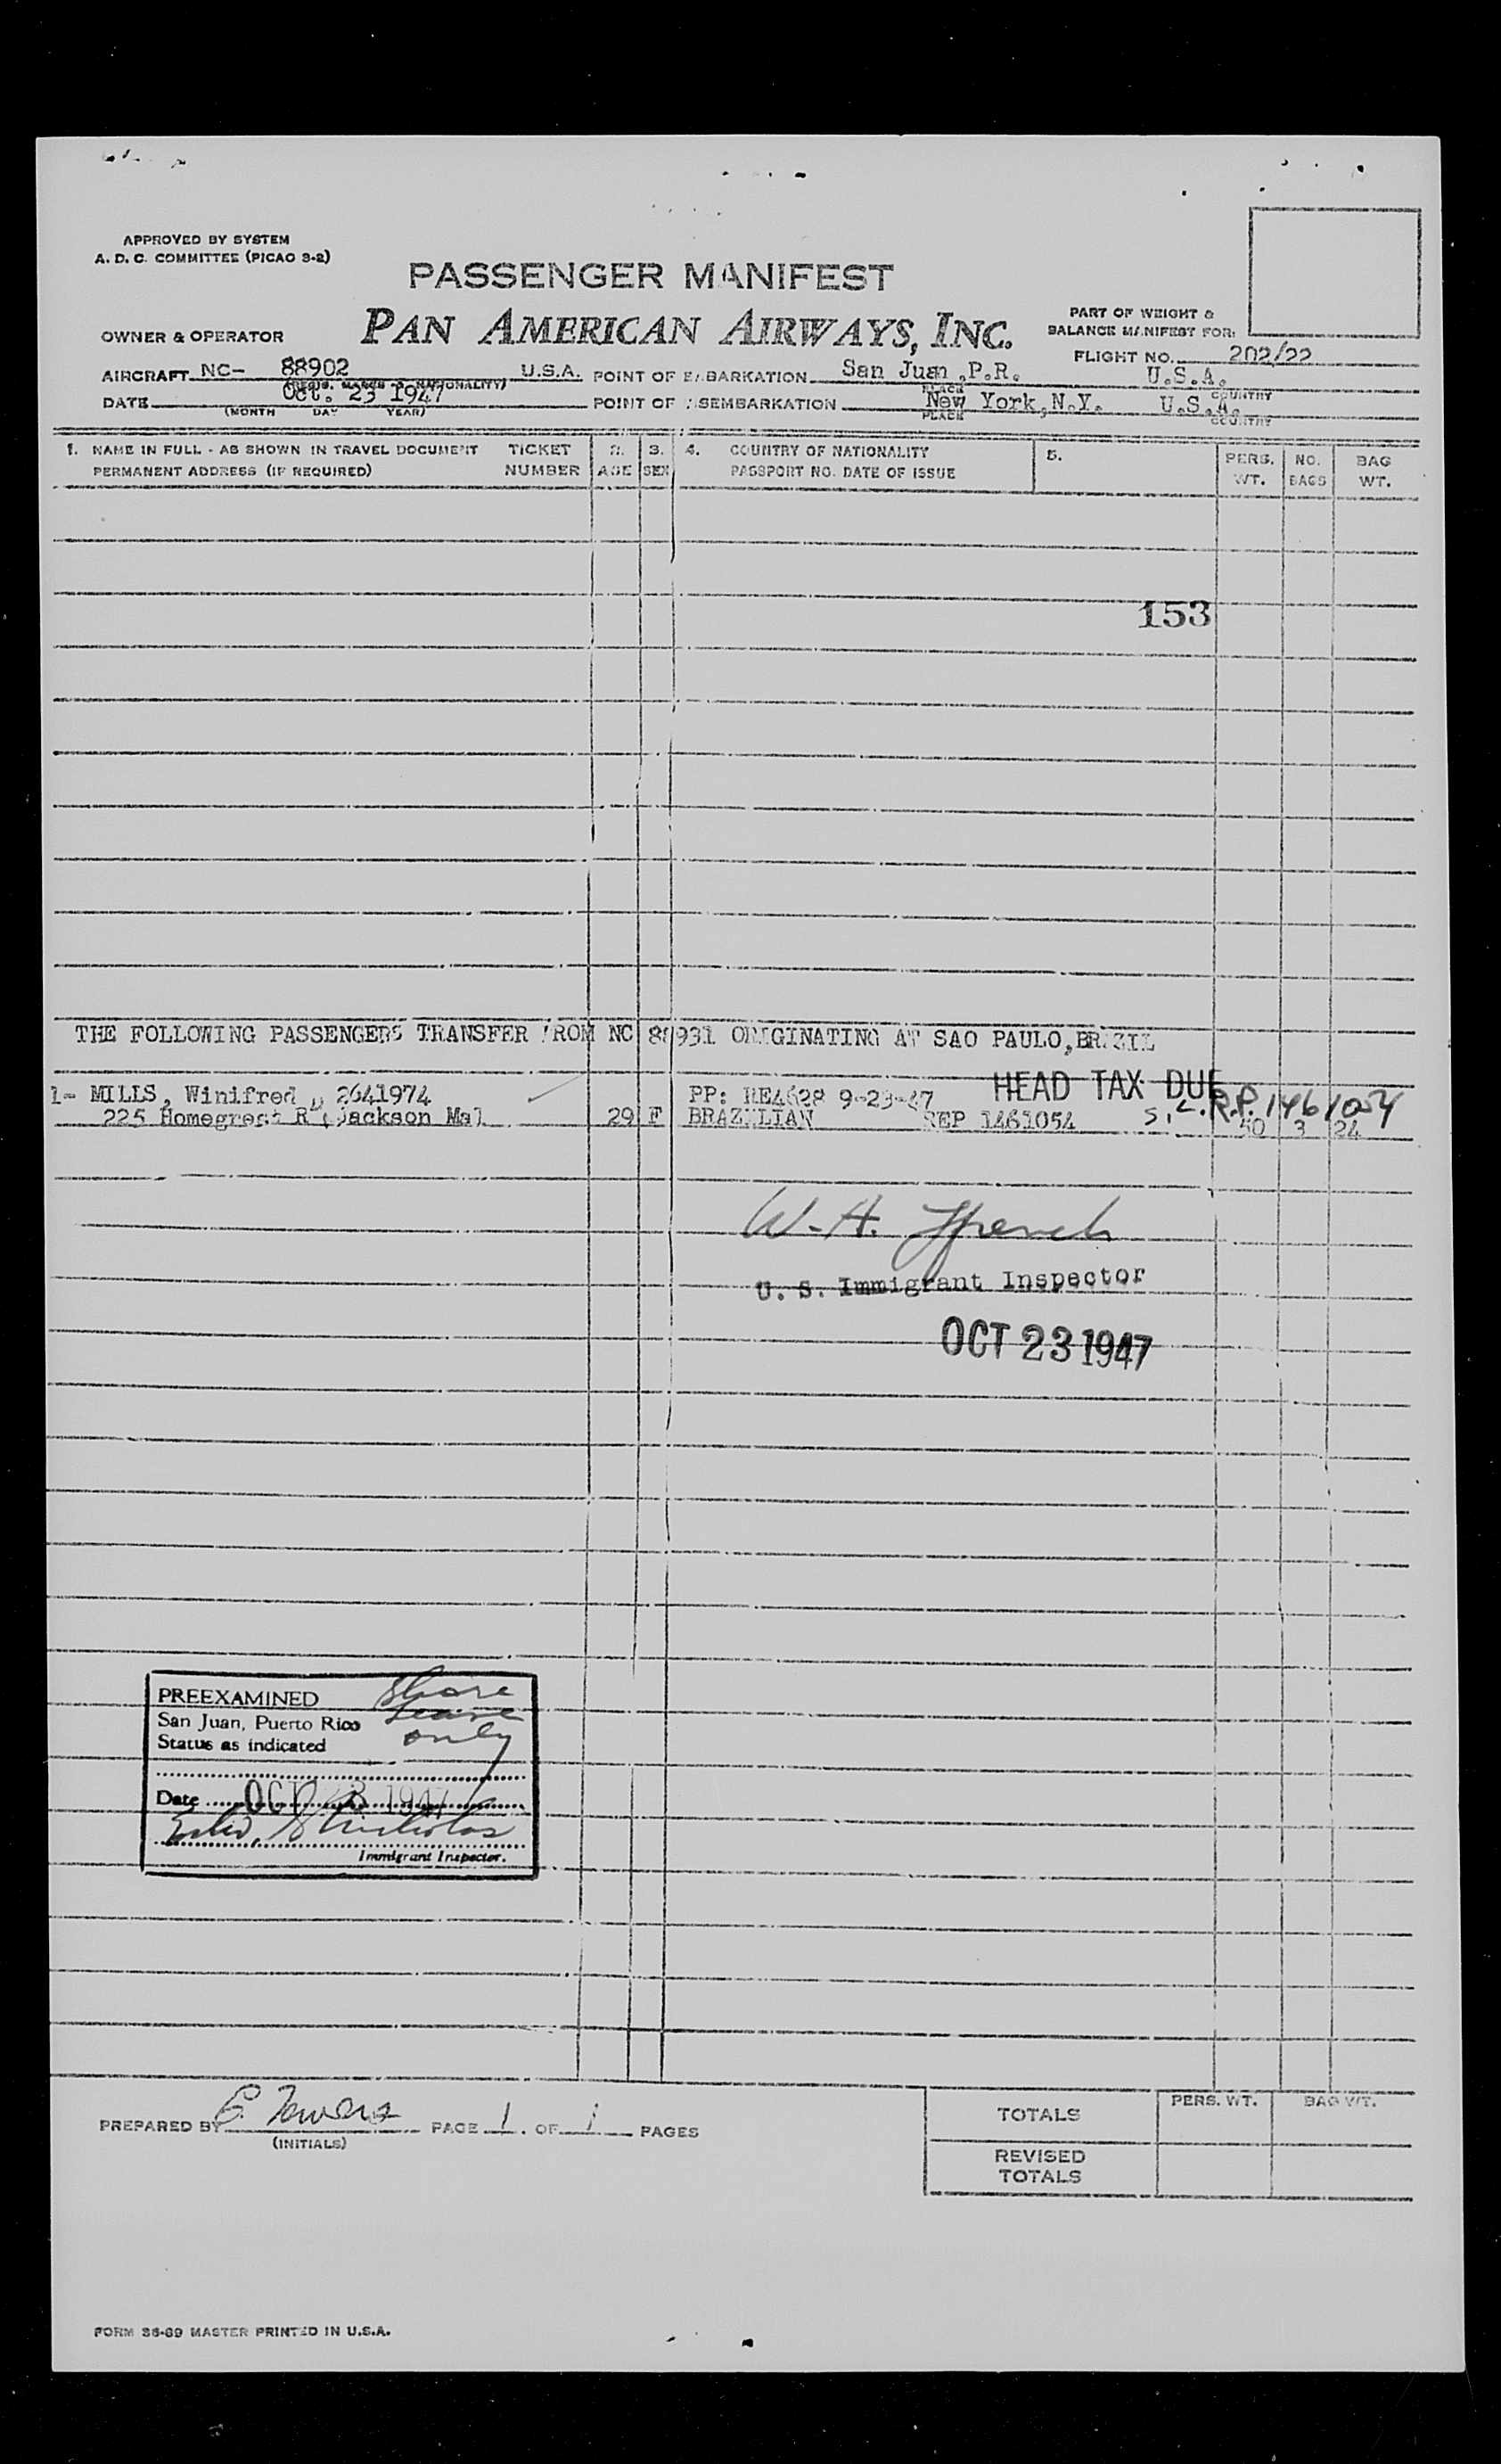 APPROVED BY SYSTEM
A. D. C. COMMITTEE (PICAO 3-2)
PASSENGER MANIFEST
OWNER & OPERATOR PAN AMERICAN AIRWAYS, INC.
PART OF WEIGHT &
BALANCE MANIFEST FOR:
FLIGHT NO. 202/22
AIRCRAFT NC- 88902 U.S.A. POINT OF EMBARKATION San Juan ,P.R. U.S.A.
(REGIS. MARKS & NATIONALITY) PLACE COUNTRY
DATE Oct. 23 1947 POINT OF DISEMBARKATION New York,N.Y. U.S.A.
(MONTH DAY YEAR) PLACE COUNTRY
1. NAME IN FULL - AS SHOWN IN TRAVEL DOCUMENT TICKET 2. 3. 4. COUNTRY OF NATIONALITY 5. PERS. NO. BAG
PERMANENT ADDRESS (IF REQUIRED) NUMBER AGE SEX PASSPORT NO. DATE OF ISSUE WT. BAGS WT.
153
THE FOLLOWING PASSENGERS TRANSFER FROM NC 88931 ORIGINATING AT SAO PAULO,BRAZIL
HEAD TAX DUE
1- MILLS, Winifred 2641974 PP: 9-23-47 R.P. 1461054
225 Jackson 29 F BRAZILIAN REP 1461054 3 24
W. A.
U. S. Immigrant Inspector
OCT 23 1947
PREEXAMINED Shore
San Juan, Puerto Rico Leave
Status as indicated only
Date OCT 23 1947
Immigrant Inspector.
PREPARED BY E. Towers PAGE 1 OF 1 PAGES
(INITIALS)
TOTALS PERS. WT. BAG WT.
REVISED
TOTALS
FORM 36-69 MASTER PRINTED IN U.S.A.